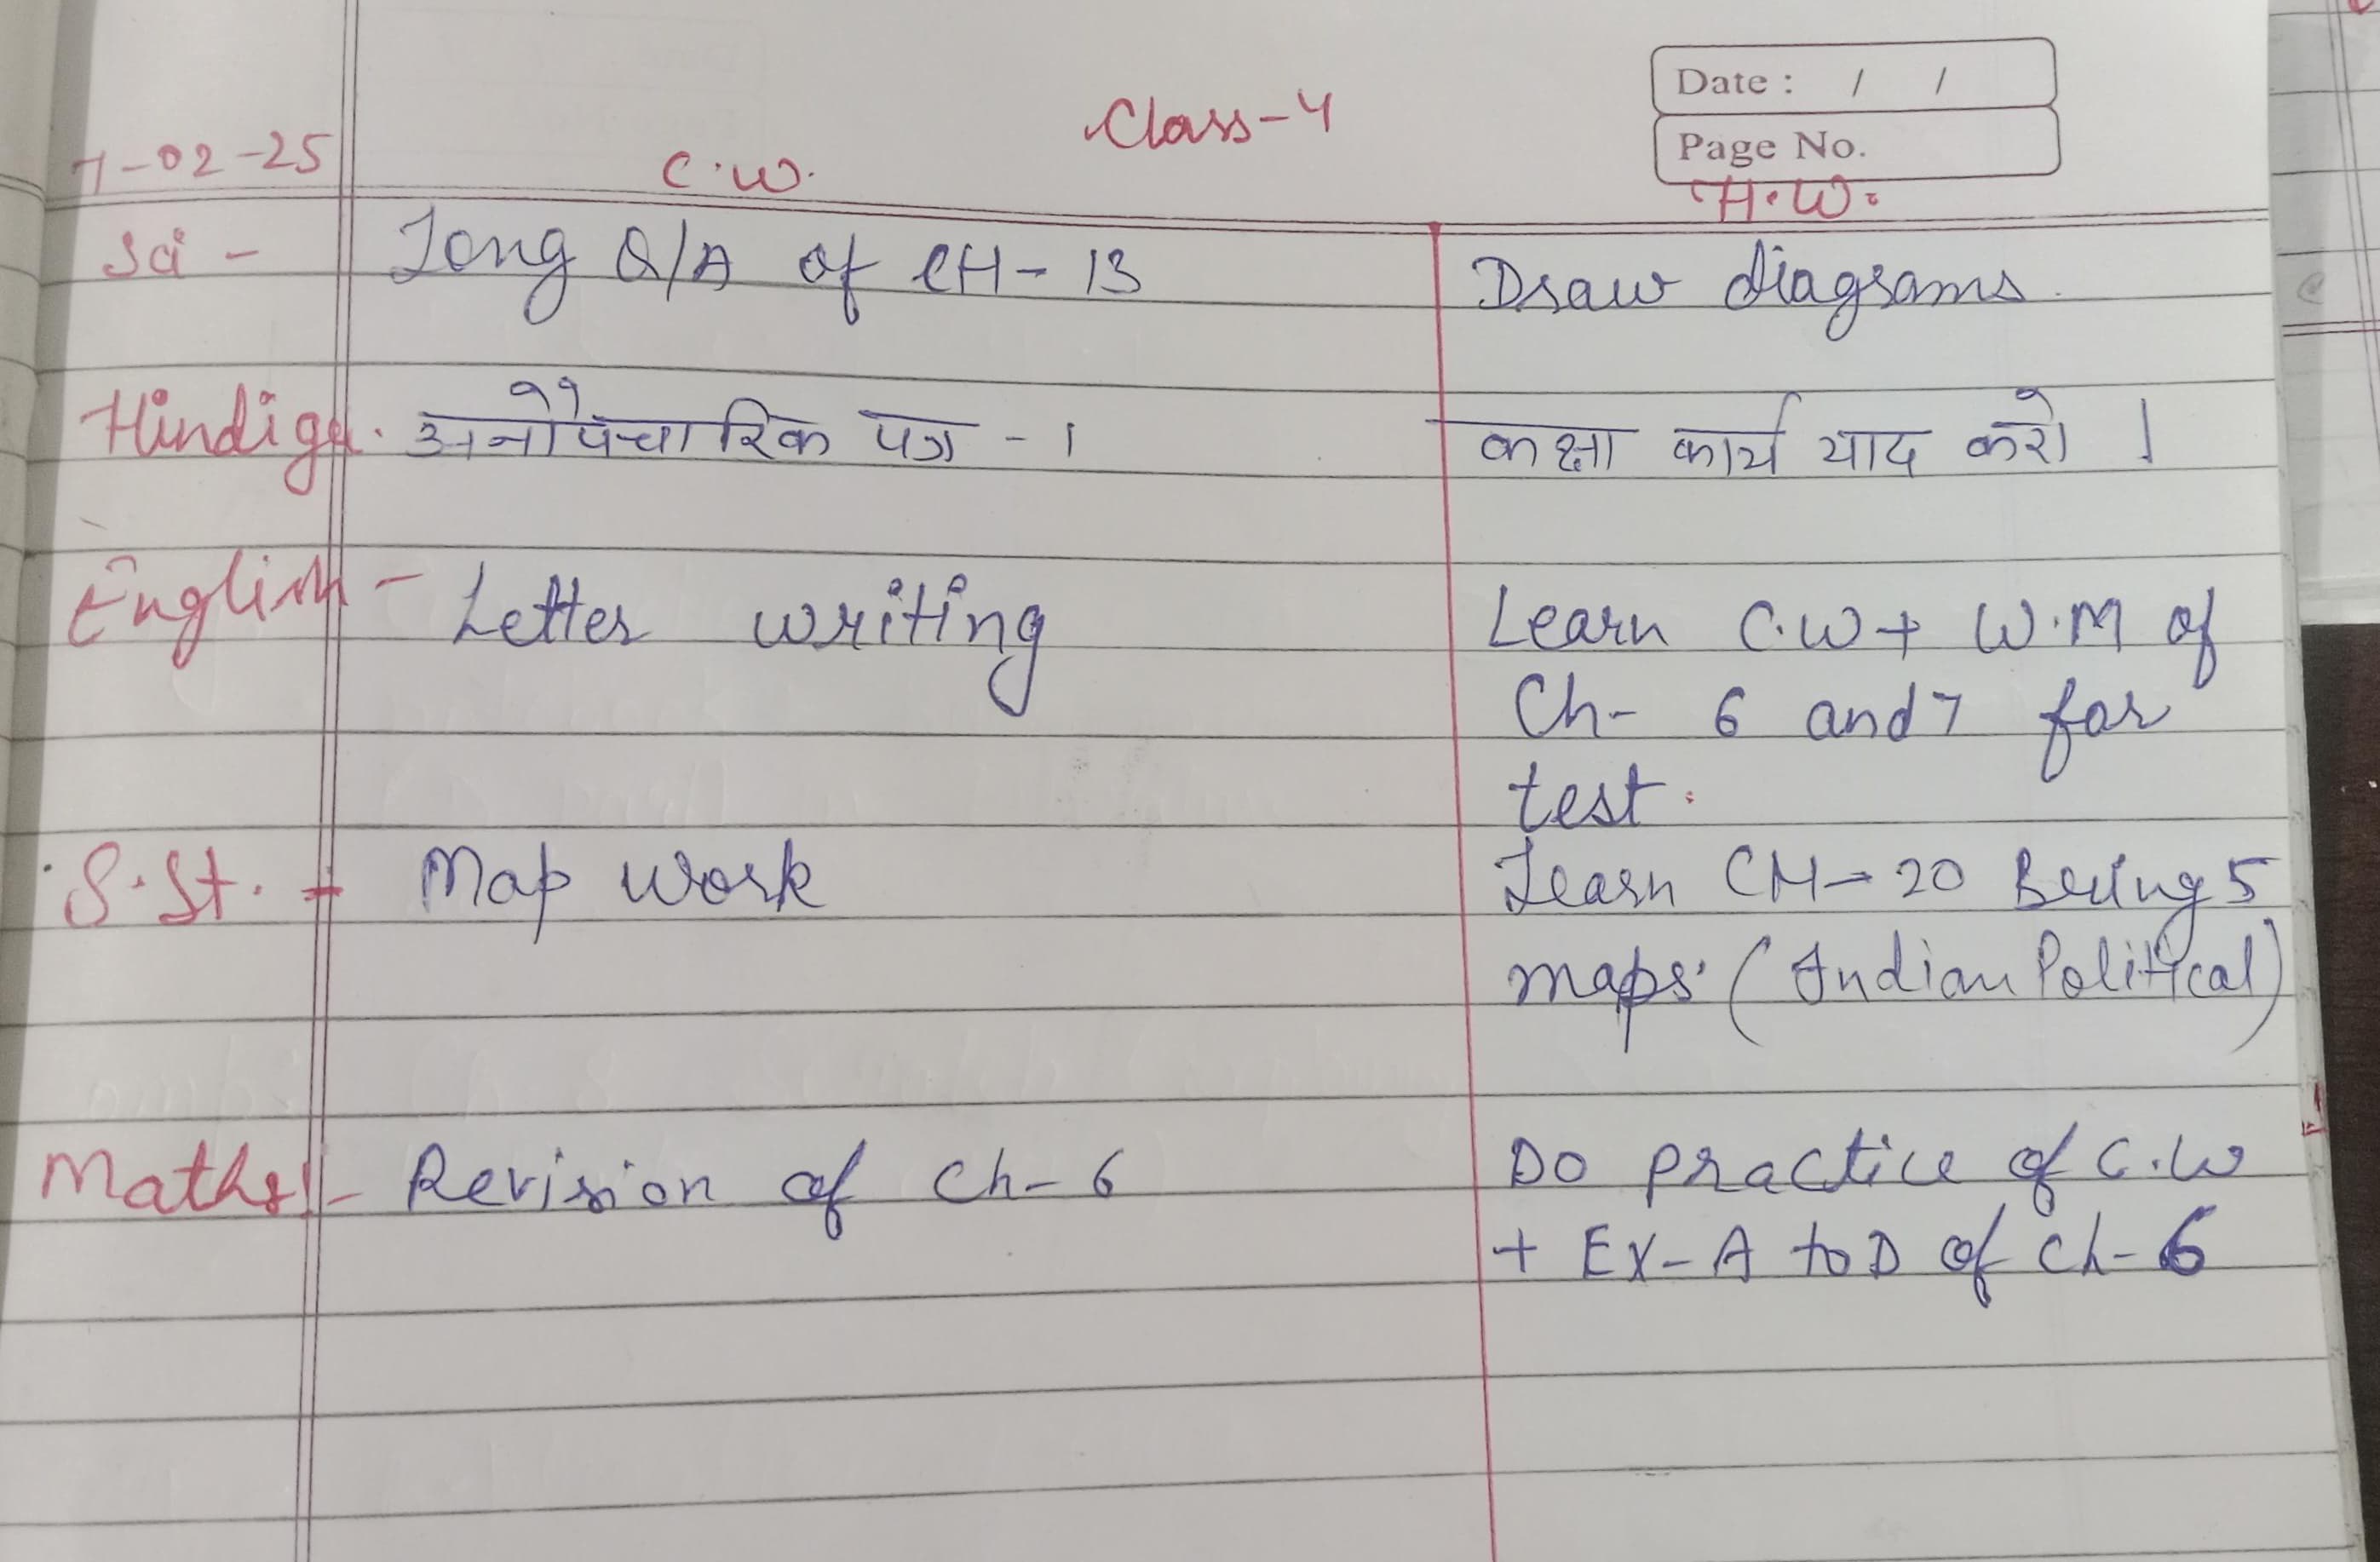 Date : / /
Page No.
Class-4
7-02-25 C.W. H.W.
Sci - Long Q/A of CH-13 Draw diagrams.
Hindi gr. अनौपचारिक पत्र - 1 कक्षा कार्य याद करो ।
English - Letter writing Learn C.W + W.M of
Ch- 6 and 7 for
test.
S.St. - Map Work Learn CH-20 Bring 5
maps. (Indian Political)
Maths - Revision of Ch-6 Do practice of C.W
+ Ex-A to D of Ch-6